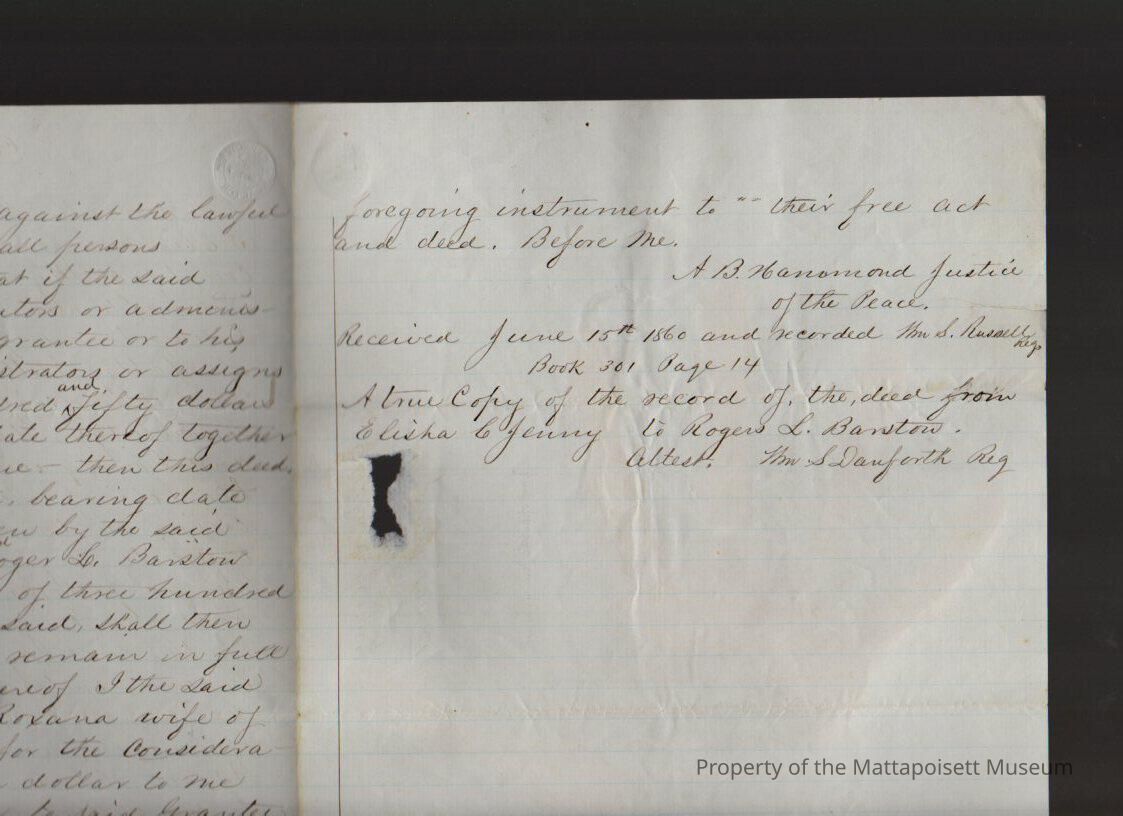 against the lawful
all persons
at if the said
ators or adminis-
grantee or to his
strators or assigns
and
dred ^ fifty dollars
date thereof together
ue - then this deed,
, bearing date
en by the said
oger L. Barstow
of three hundred
said, shall then
remain in full
ereof I the said
Roxana wife of
for the Considera-
dollar to me
to said Grantee
foregoing instrument to " " their free act
and deed. Before Me.
A B. Hammond Justice
of the Peace.
Received June 15th 1860 and recorded Wm S. Russell
Regr
Book 301 Page 14
A true Copy of the record of, the, deed from
Elisha C Jenny to Rogers L. Barstow.
Attest. Wm S Danforth Reg
Property of the Mattapoisett Museum